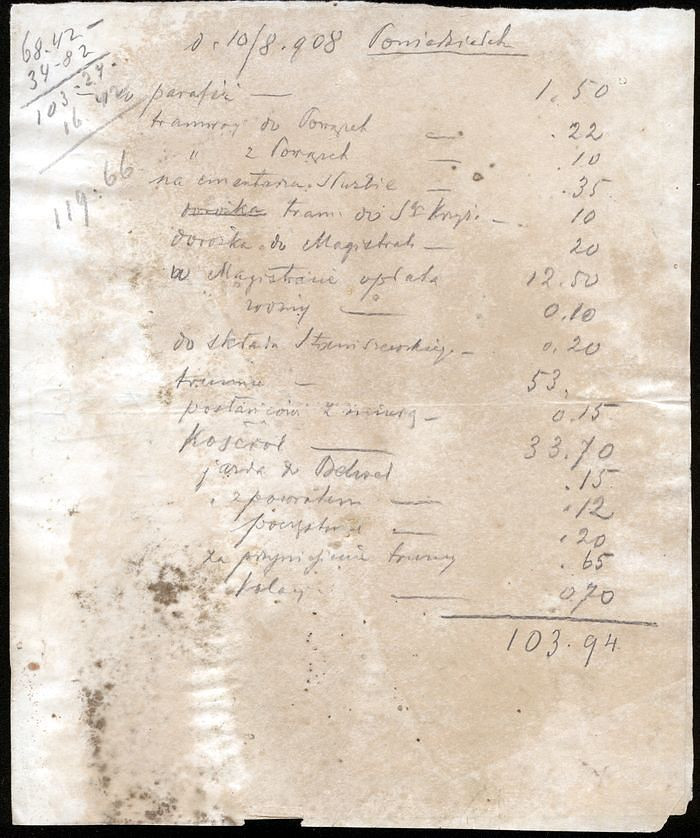 68.42
34-82
103-24
16.
119.66
d. 10/8.908 Poniedziałek
parafii — 1.50
tramway do Powązek — .22
" z Powązek — .10
na cmentarzu służbie — .35
dorożka tram. do Św Krzyż. — 10
dorożka do Magistratu — 20
w Magistracie opłata 12.50
woźny — 0.10
do składu — 0.20
trumna — 53.
posłańcowi z miarą — 0.15
Kościół — 33.70
jazda do .15
" z powrotem — .12
— .20
za przyniesienie trumny .65
— 0,70
103.94